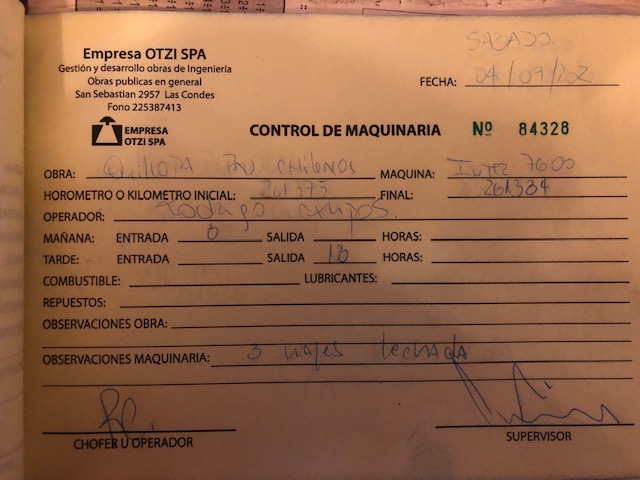 Empresa OTZI SPA
Gestión y desarrollo obras de Ingeniería
Obras publicas en general
San Sebastian 2957 Las Condes
Fono 225387413
SAGADO.
FECHA: 04/09/22
EMPRESA
OTZI SPA
CONTROL DE MAQUINARIA Nº 84328
OBRA: Quillota MAQUINA: 7600
HOROMETRO O KILOMETRO INICIAL: 261373 FINAL: 261384
OPERADOR: Rodrigo
MAÑANA: ENTRADA 8 SALIDA HORAS:
TARDE: ENTRADA SALIDA 18 HORAS:
COMBUSTIBLE: LUBRICANTES:
REPUESTOS:
OBSERVACIONES OBRA:
OBSERVACIONES MAQUINARIA: 3 viajes lechada
CHOFER U OPERADOR SUPERVISOR